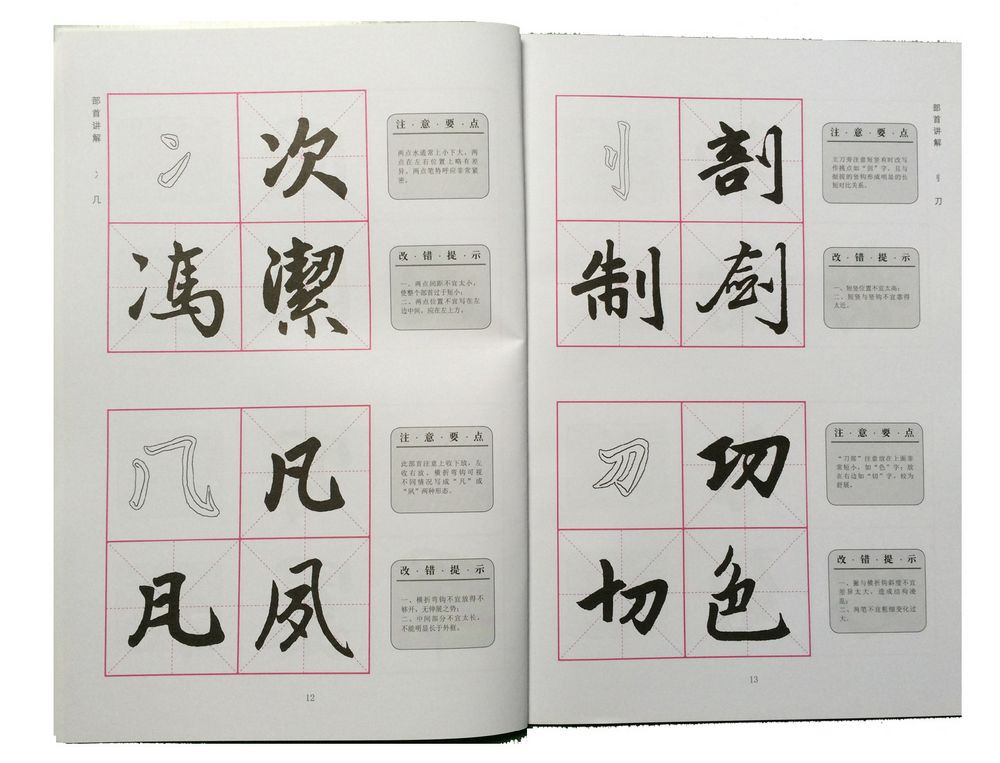 部首讲解
冫
几
冫
次
馮
潔
注·意·要·点
两点水通常上小下大，两
点在左右位置上略有差
异，两点笔势呼应非常紧
密。
改·错·提·示
一、两点间距不宜太小，
使整个部首过于短小；
二、两点位置不宜写在左
边中间，应在左上方；
几
凡
凡
夙
注·意·要·点
此部首注意上收下放，左
收右放，横折弯钩可视
不同情况写成“凡”或
“夙”两种形态。
改·错·提·示
一、横折弯钩不宜放得不
够开，无伸展之势；
二、中间部分不宜太长，
不能明显长于外框。
12
部首讲解
刂
刀
刂
剖
制
剑
注·意·要·点
立刀旁注意短竖有时改写
作挑点如“剖”字，且与
挺拔的竖钩形成明显的长
短对比关系。
改·错·提·示
一、短竖位置不宜太高；
二、短竖与竖钩不宜靠得
太近。
刀
切
切
色
注·意·要·点
“刀部”注意放在上面非
常短小，如“色”字；放
在右边如“切”字，较为
舒展。
改·错·提·示
一、撇与横折钩斜度不宜
差异太大，造成结构凌
乱；
二、两笔不宜粗细变化过
大。
13